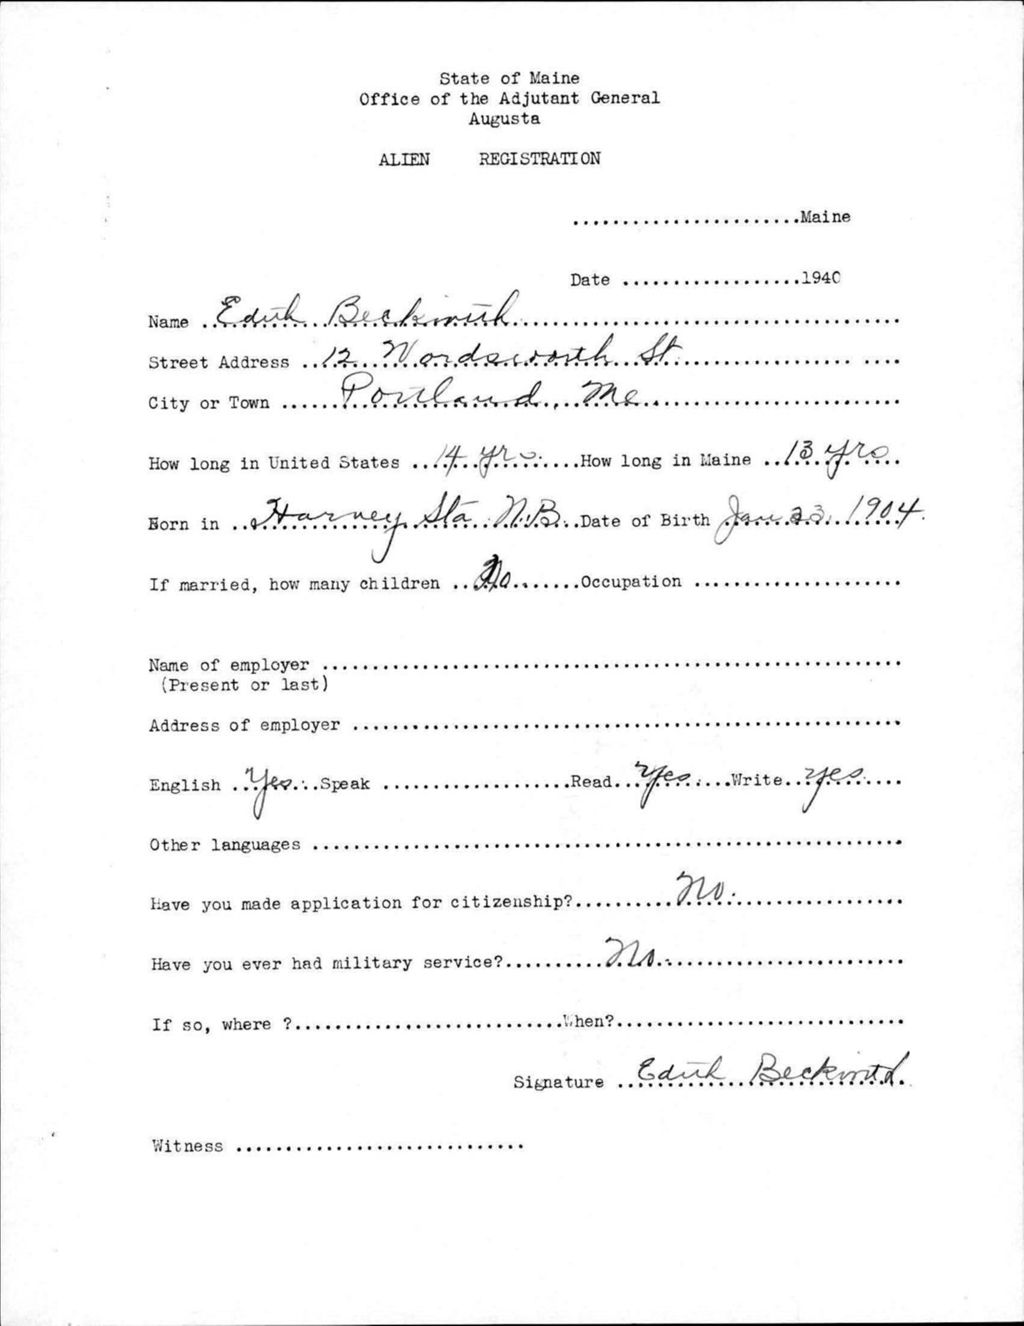 State of Maine
Office of the Adjutant General
Augusta
ALIEN REGISTRATION
.......................Maine
Date ..................1940
Name ..Edith Beckwith......................................
Street Address ..12 Wordsworth St........................ ....
City or Town ......Portland, Me...........................
How long in United States ...14 yrs.....How long in Maine ..13 yrs..
Born in ..Harvey Sta. N.B...Date of Birth Jan. 23, 1904.
If married, how many children ..No.......Occupation .....................
Name of employer ..........................................................
(Present or last)
Address of employer .......................................................
English ..Yes...Speak ...................Read...Yes.....Write..yes....
Other languages ...........................................................
Have you made application for citizenship?..........No...................
Have you ever had military service?..........No..........................
If so, where ?...........................When?.............................
Signature ..Edith Beckwith.
Witness .............................